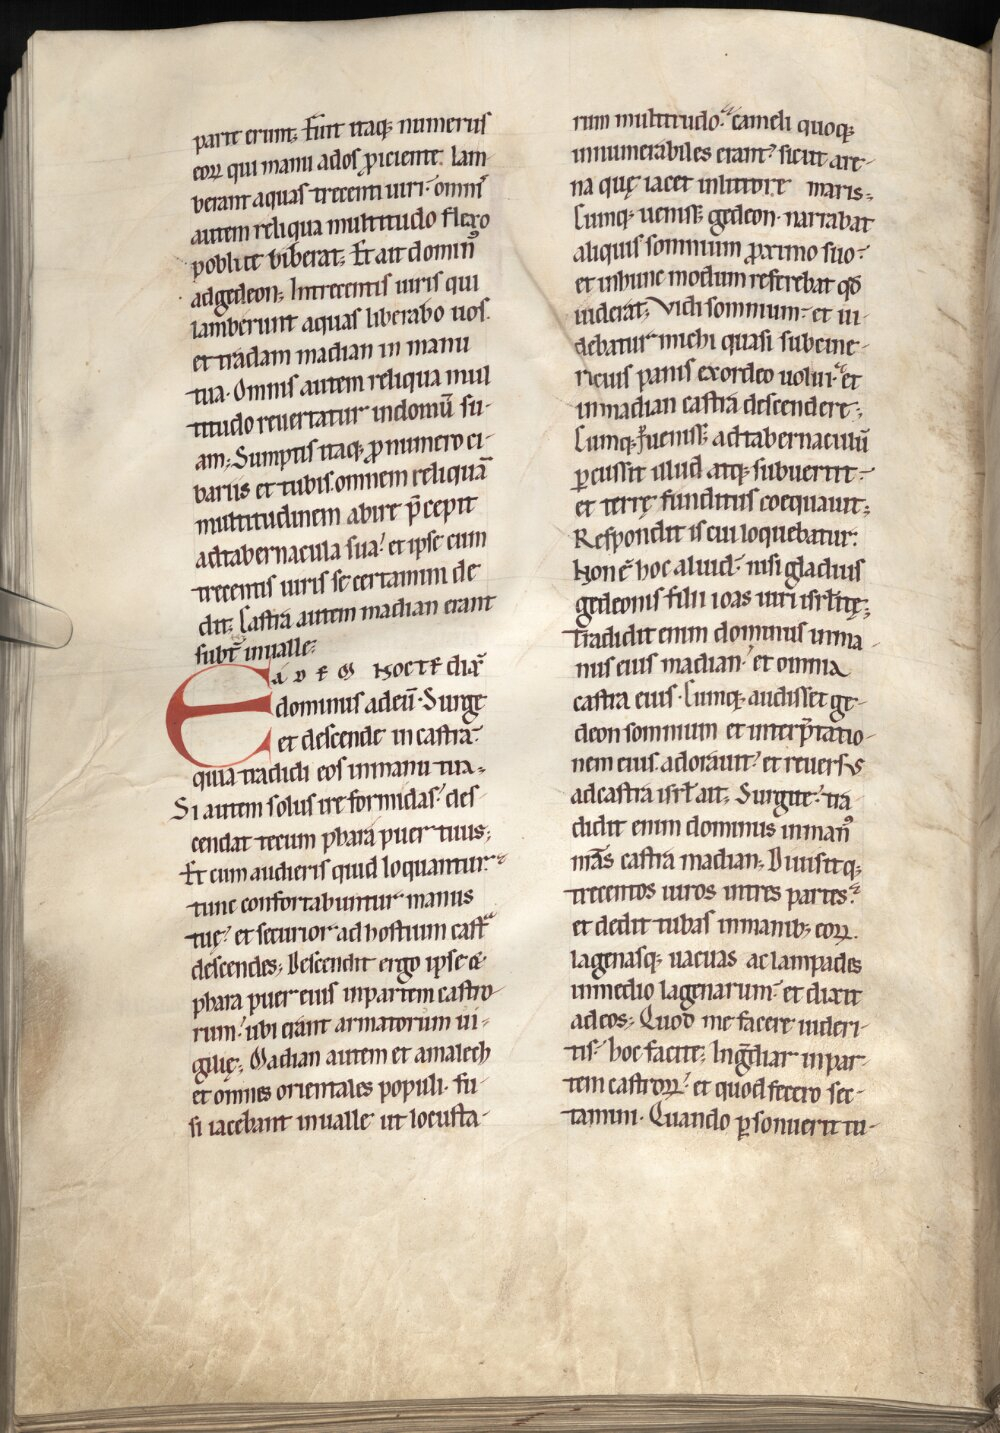 parte erunt; Fuit itaq; numerus
eoꝝ qui manu ados ꝓiciente lam-
berant aquas trecenti uiri· omnis
autem reliqua multitudo flexo
poblite biberat; Et ait dominꝰ
adgedeon; Intrecentis uiris qui
lamberunt aquas liberabo uos.
et tradam madian in manu
tua· Omnis autem reliqua mul
titudo reuertatur indomū su-
am; Sumptis itaq; ꝓ numero ci-
bariis et tubis. omnem reliquā
multitudinem abire p̄cepit
adtabernacula sua? et ipse cum
trecentis uiris se certamini de
dit; Castra autem madian erant
subt̄ inualle;
EADEM NOCTE dix̄
dominus adeū· Surge
et descende in castra·
quia tradidi eos inmanu tua;
Si autem solus ire formidas? des-
cendat tecum phara puer tuus;
Et cum audieris quid loquantur?
tunc confortabuntur manus
tuę? et securior ad hostium castra
descendes; Descendit ergo ipse &
phara puer eius inpartem castro-
rum? ubi erant armatorum ui-
gilię; Madian autem et amalech
et omnes orientales populi· fu-
si iacebant inualle ut locusta-
rum multitudo? cameli quoq;
innumerabiles erant? sicut are-
na quę iacet inlittore maris;
Cumq; uenisset gedeon· narrabat
aliquis somnium ꝓximo suo?
et inhunc modum referebat qđ
uiderat; Vidi somnium· et ui-
debatur michi quasi subcine-
ricius panis exordeo uolui? et
inmadian castra descendere;
Cumq; ꝑuenisset adtabernaculū
ꝑcussit illud atq; subuertit·
et terrę funditus coequauit;
Respondit is cui loquebatur?
Non ē hoc aliud· nisi gladius
gedeonis filii ioas uiri isrl̄itę;
Tradidit enim dominus inma
nus eius madian? et omnia
castra eius· Cumq; audisset ge-
deon somnium et interp̄tatio-
nem eius. adorauit? et reuersus
adcastra isrl̄ ait; Surgite? tra-
didit enim dominus inmanꝰ
nr̄as castra madian; Diuisitq;
trecentos uiros intres partes?
et dedit tubas inmanib; eoꝝ.
lagenasq; uacuas ac lampades
inmedio lagenarum· et dixit
adeos; Quod me facere uideri-
tis? hoc facite; Ingđiar inpar-
tem castroꝝ? et quod fecero sec-
tamini· Quando ꝑsonuerit tu-